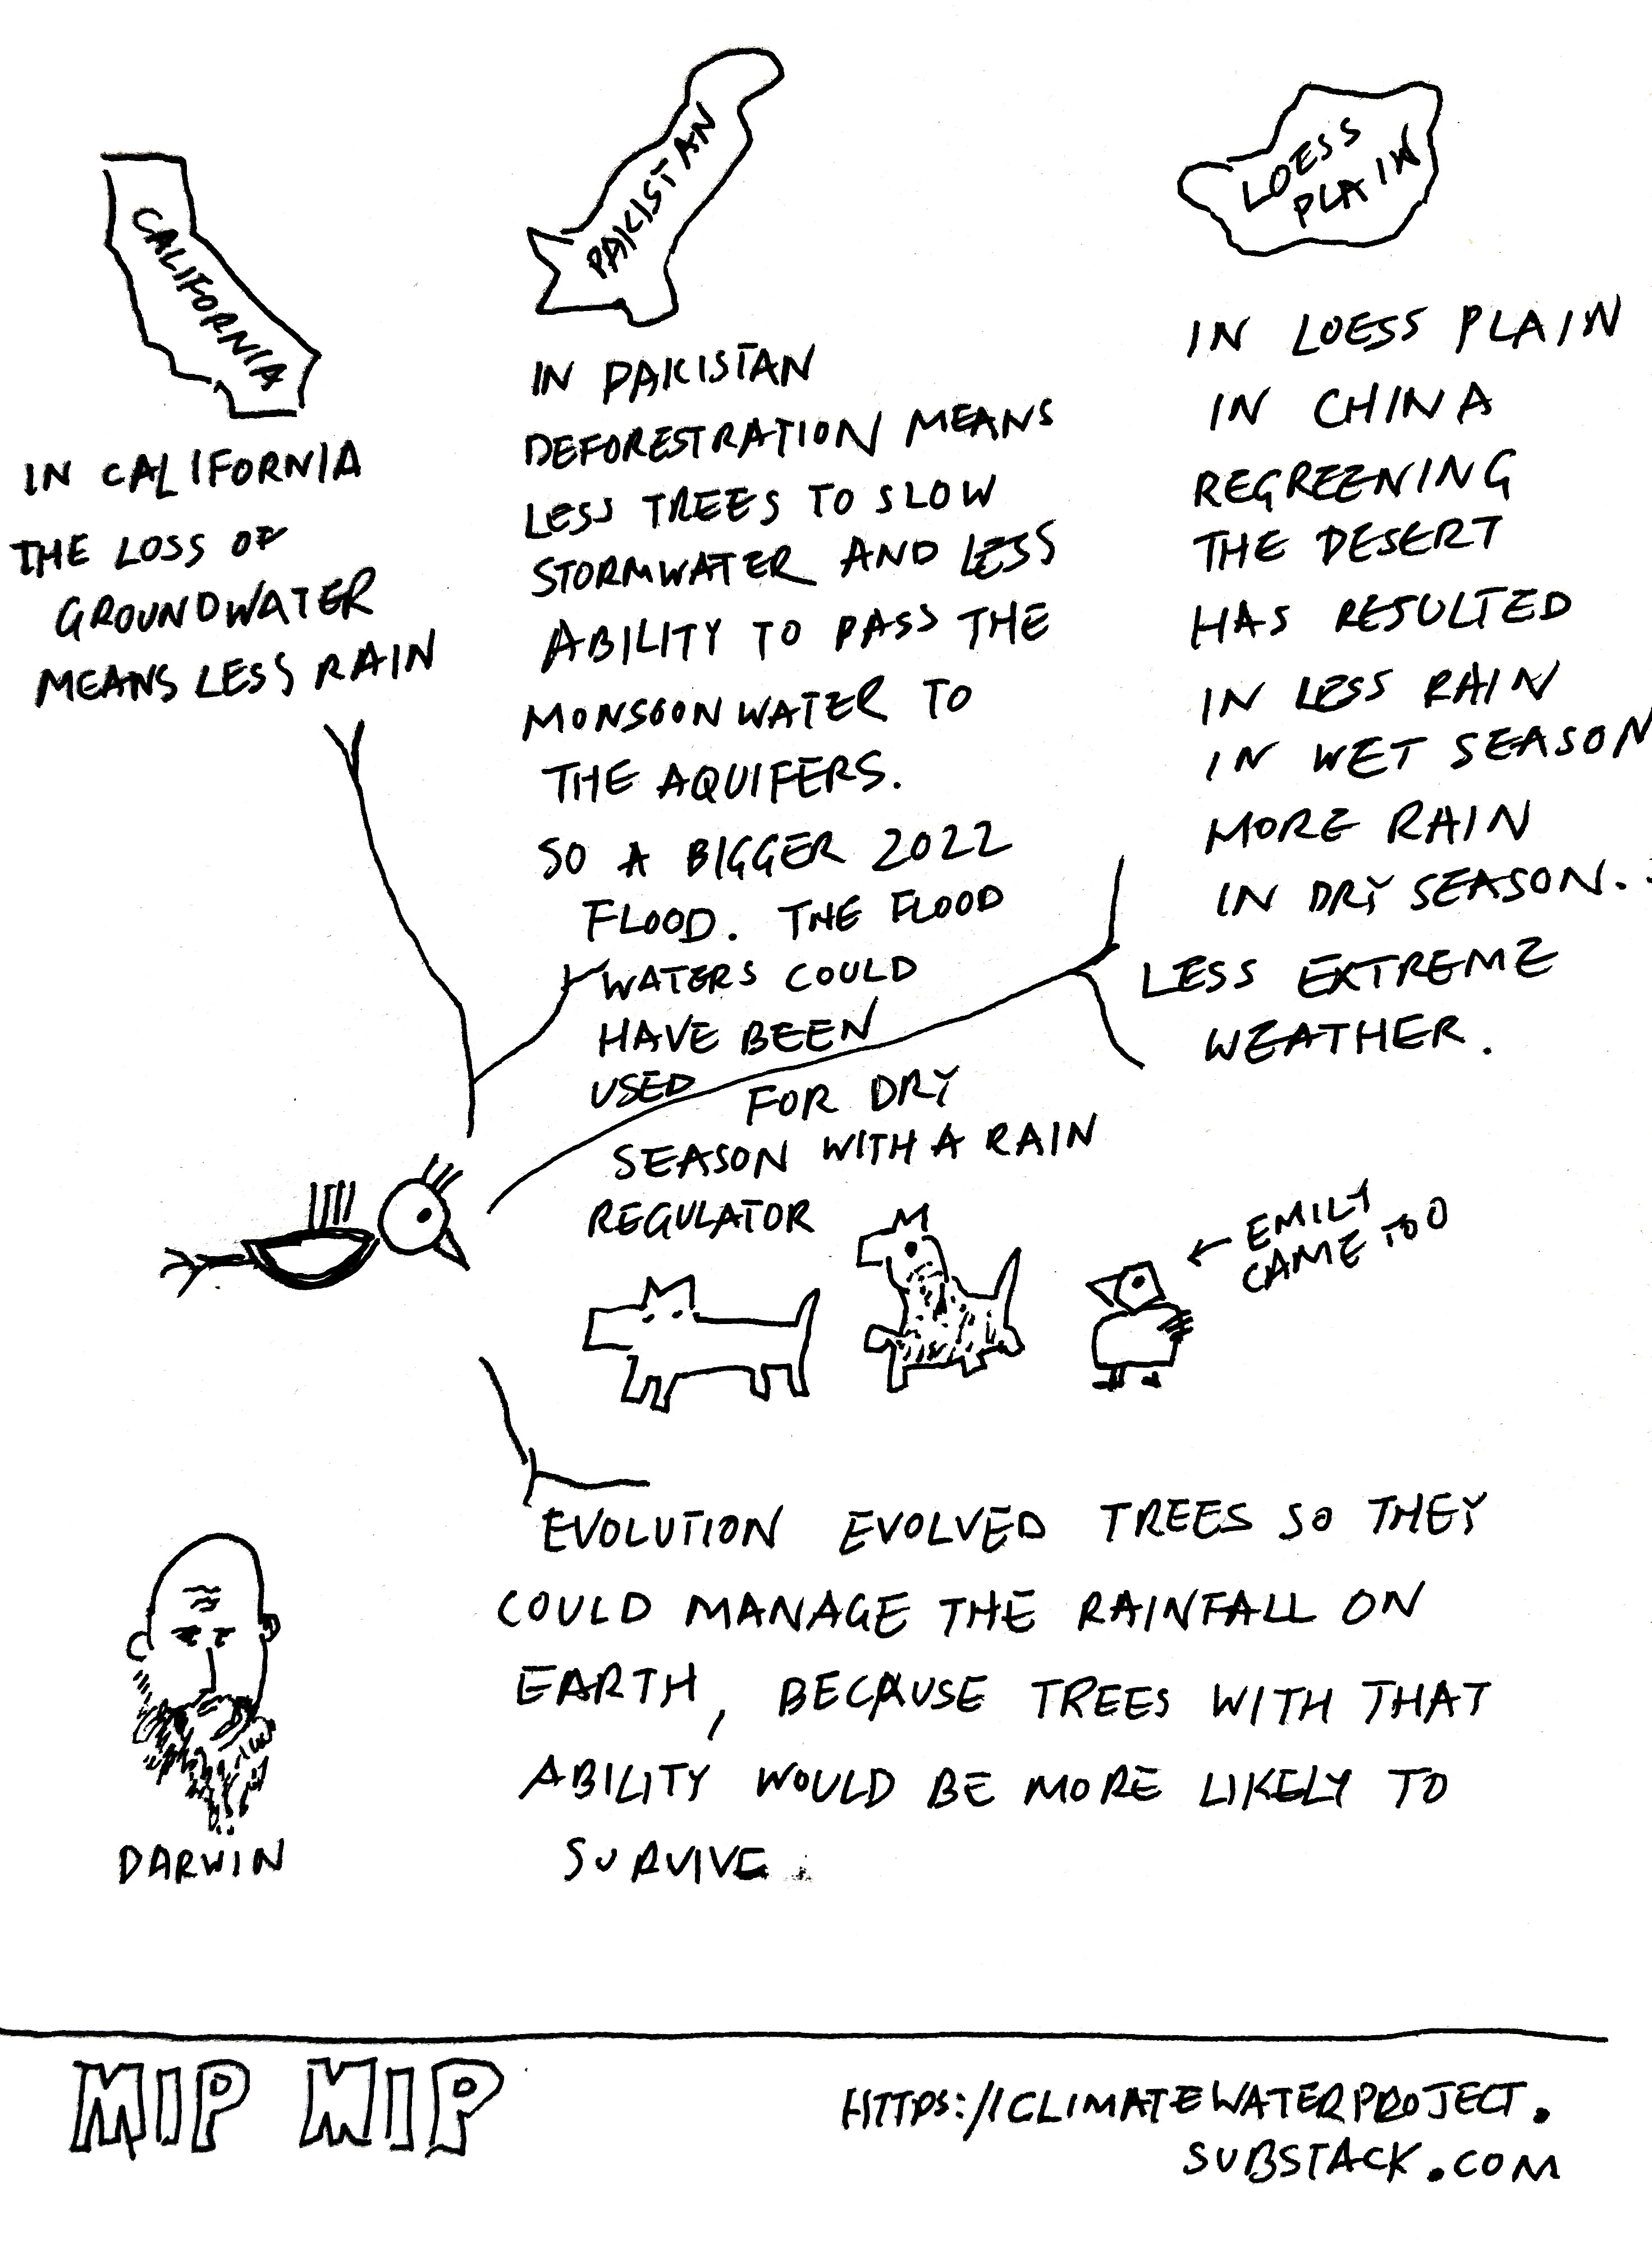 CALIFORNIA
IN CALIFORNIA
THE LOSS OF
GROUNDWATER
MEANS LESS RAIN
PAKISTAN
IN PAKISTAN
DEFORESTRATION MEANS
LESS TREES TO SLOW
STORMWATER AND LESS
ABILITY TO PASS THE
MONSOON WATER TO
THE AQUIFERS.
SO A BIGGER 2022
FLOOD. THE FLOOD
WATERS COULD
HAVE BEEN
USED FOR DRY
SEASON WITH A RAIN
REGULATOR
LOESS
PLAIN
IN LOESS PLAIN
IN CHINA
REGREENING
THE DESERT
HAS RESULTED
IN LESS RAIN
IN WET SEASON
MORE RAIN
IN DRY SEASON.
LESS EXTREME
WEATHER.
← EMILY
CAME TOO
EVOLUTION EVOLVED TREES SO THEY
COULD MANAGE THE RAINFALL ON
EARTH, BECAUSE TREES WITH THAT
ABILITY WOULD BE MORE LIKELY TO
SURVIVE.
DARWIN
MIP MIP
HTTPS://CLIMATEWATERPROJECT.
SUBSTACK.COM